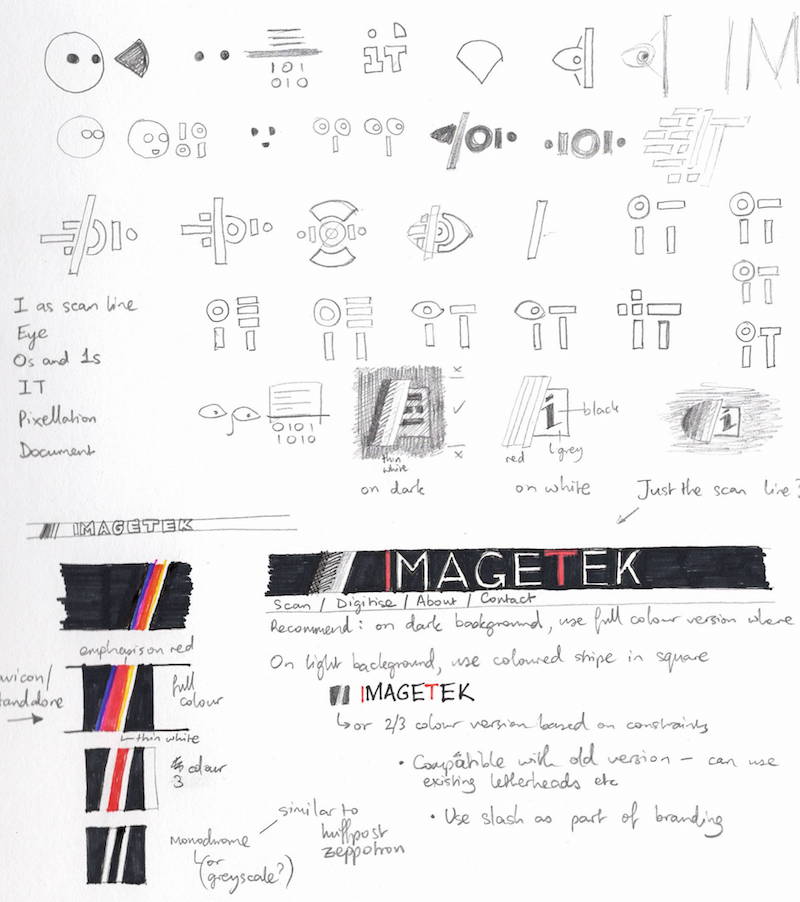 101
010
iT
IM
IOI
IOI
T
iT
iT
iT
iT
iT
iT
iT
iT
I as scan line
Eye
0s and 1s
IT
Pixellation
Document
0101
1010
thin
white
on dark
i
black
red
grey
on white
i
Just the scan line?
IMAGETEK
IMAGETEK
Scan / Digitise / About / Contact
Recommend: on dark background, use full colour version where
emphasis on red
On light background, use coloured stripe in square
wicon/
tandalone
full
colour
IMAGETEK
or 2/3 colour version based on constraints
thin white
colour
3
• Compatible with old version – can use
existing letterheads etc
• Use slash as part of branding
similar to
huffpost
zeppotron
monochrome
or
(greyscale?)